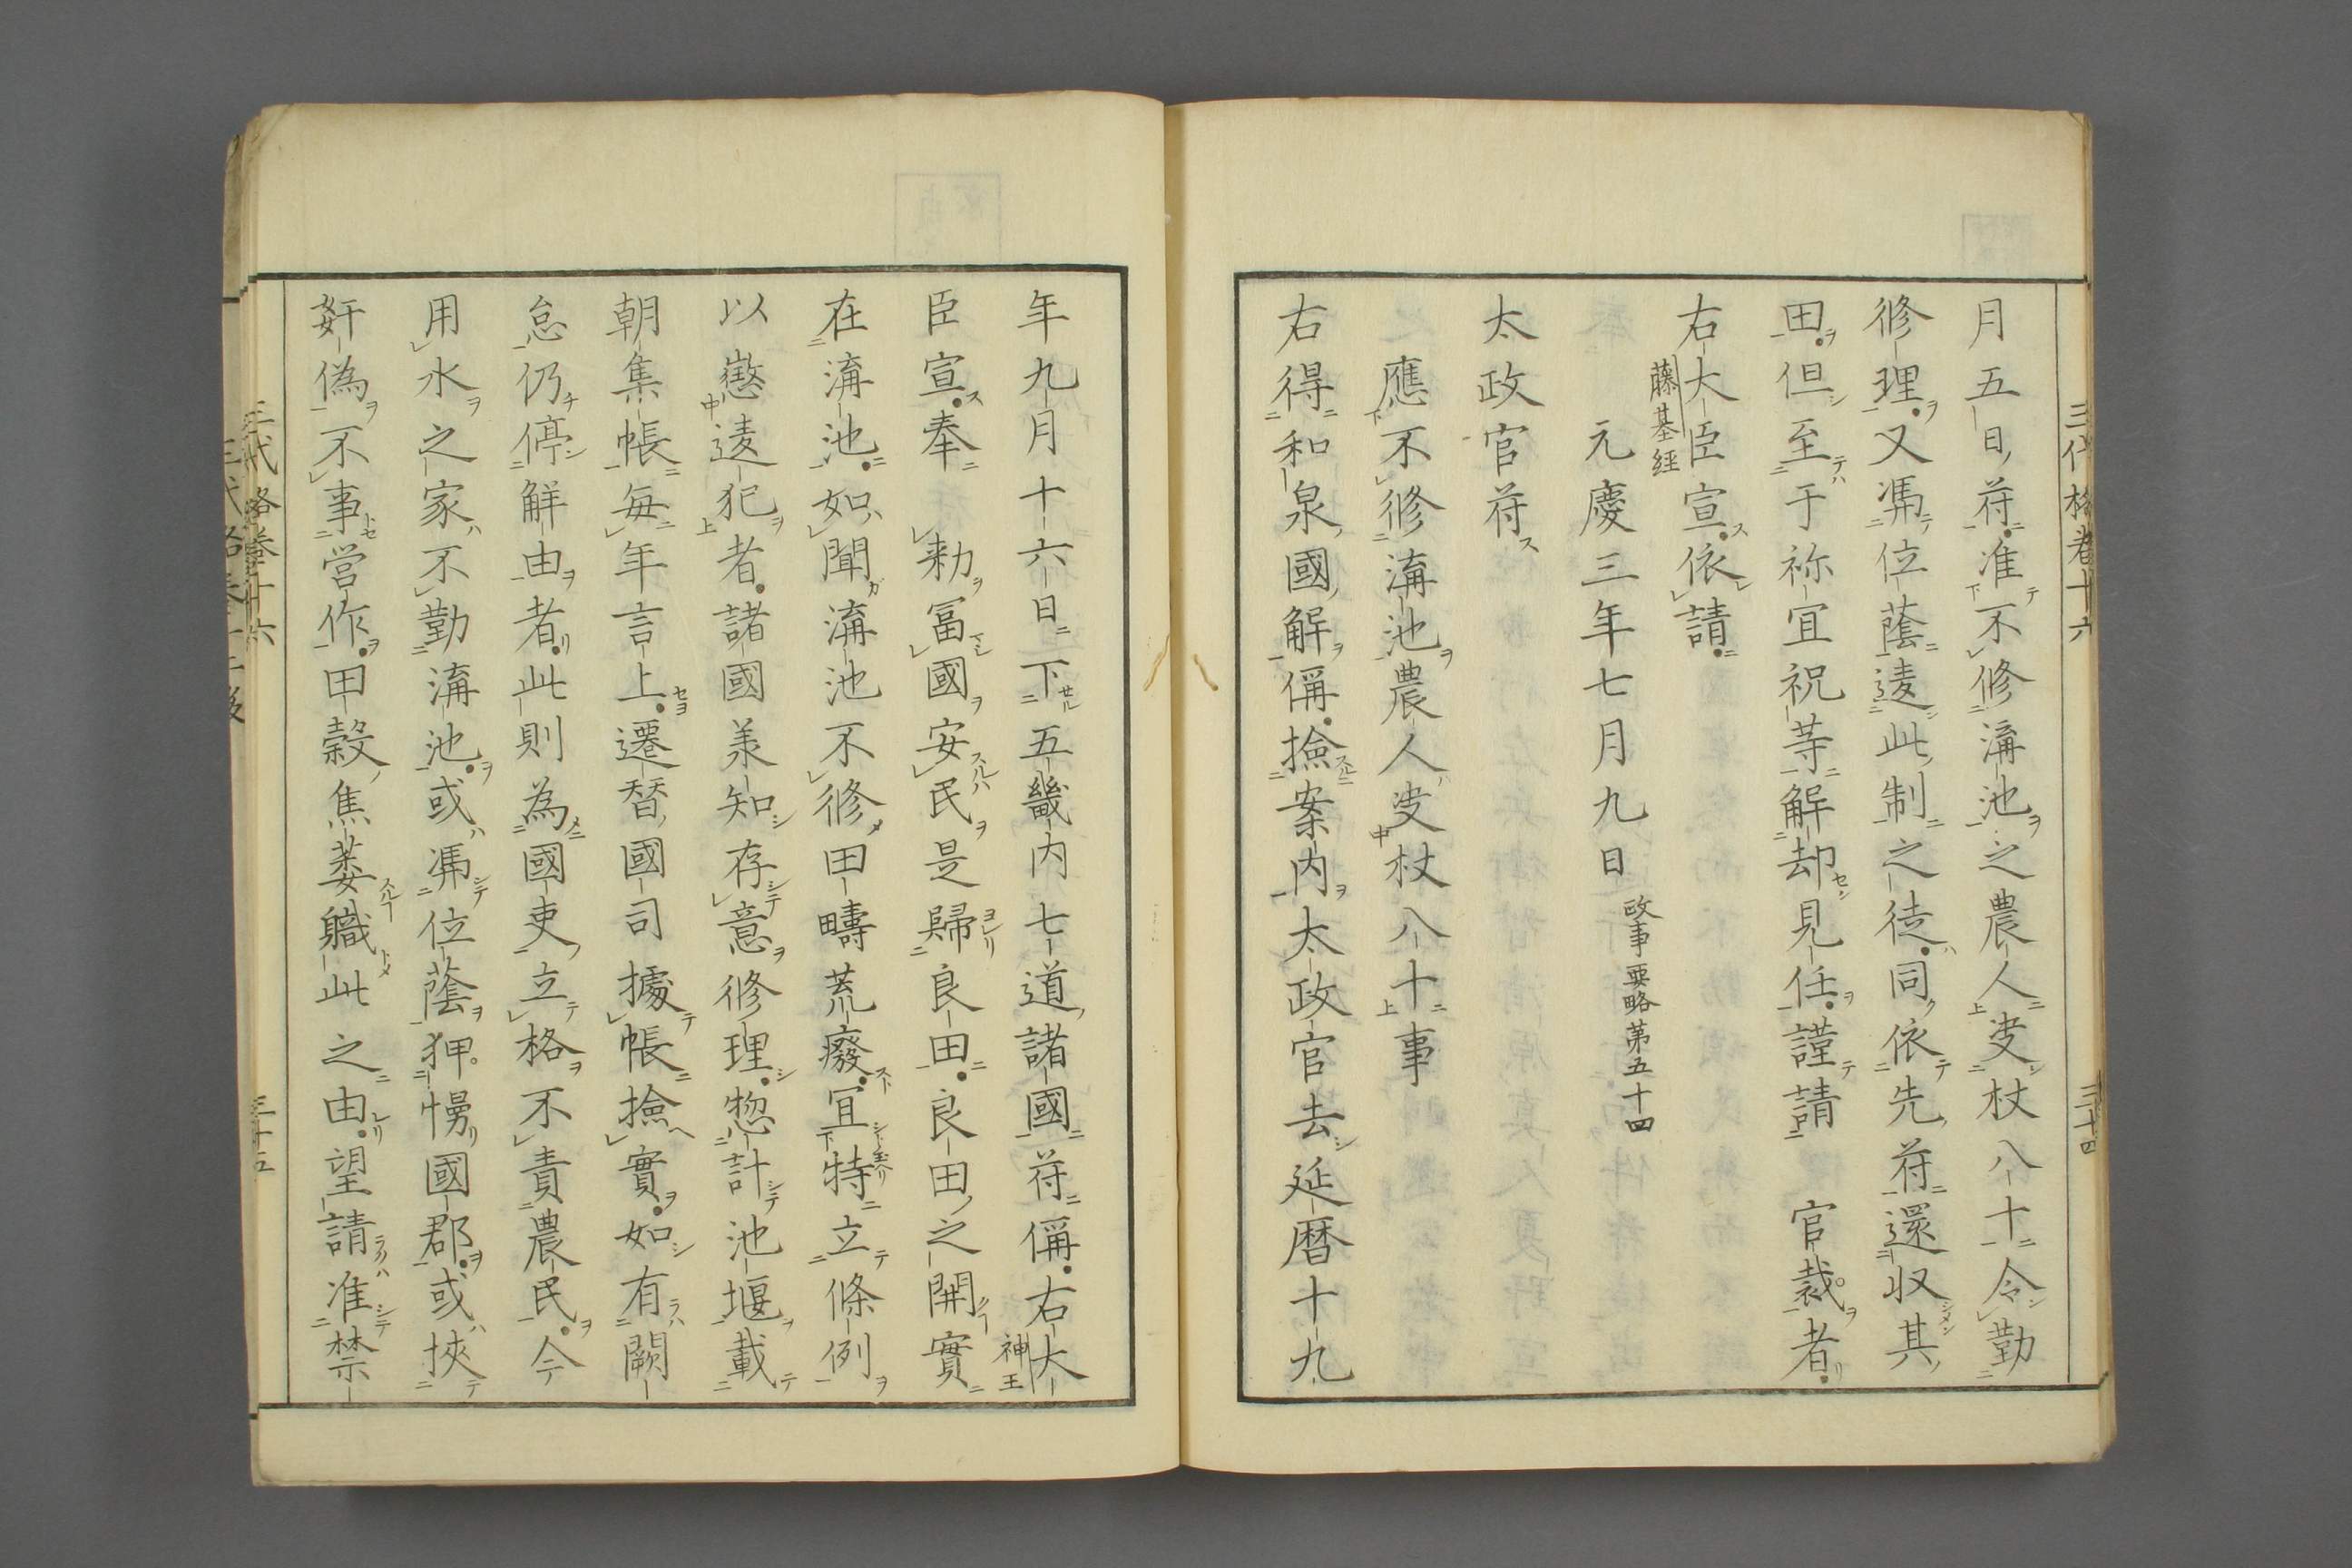 三代格卷十六
三十四
月五日符准不修溝池之農人决杖八十令勤
修理又馮位蔭遠此制之徒同依先符還収其
田但至于祢宜祝等解却見任謹請　官裁者
右大臣宣依請
藤基經
元慶三年七月九日　政事要略第五十四
太政官符
應不修溝池農人决杖八十事
右得和泉國解偁撿案内太政官去延暦十九
年九月十六日下五畿内七道諸國符偁右大
神王
臣宣奉　勅冨國安民是歸良田良田之開實
在溝池如聞溝池不修田疇荒癈宜特立條例
以懲違犯者諸國羕知存意修理惣計池堰載
朝集帳毎年言上遷替國司據帳撿實如有闕
怠仍停解由者此則為國吏立格不責農民今
用水之家不勤溝池或馮位蔭狎慢國郡或挾
奸偽不事営作田穀焦萎職此之由望請准禁
三代格卷十六
三十五